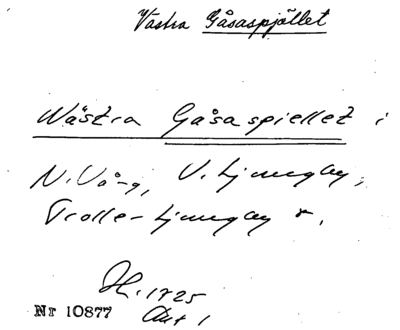 Västra Gåsaspjället
Wästra Gåsaspiellet i
N. Vång, V. Ljungby,
Trolle-Ljungby
H. 1725
Akt 1
Nr 10877